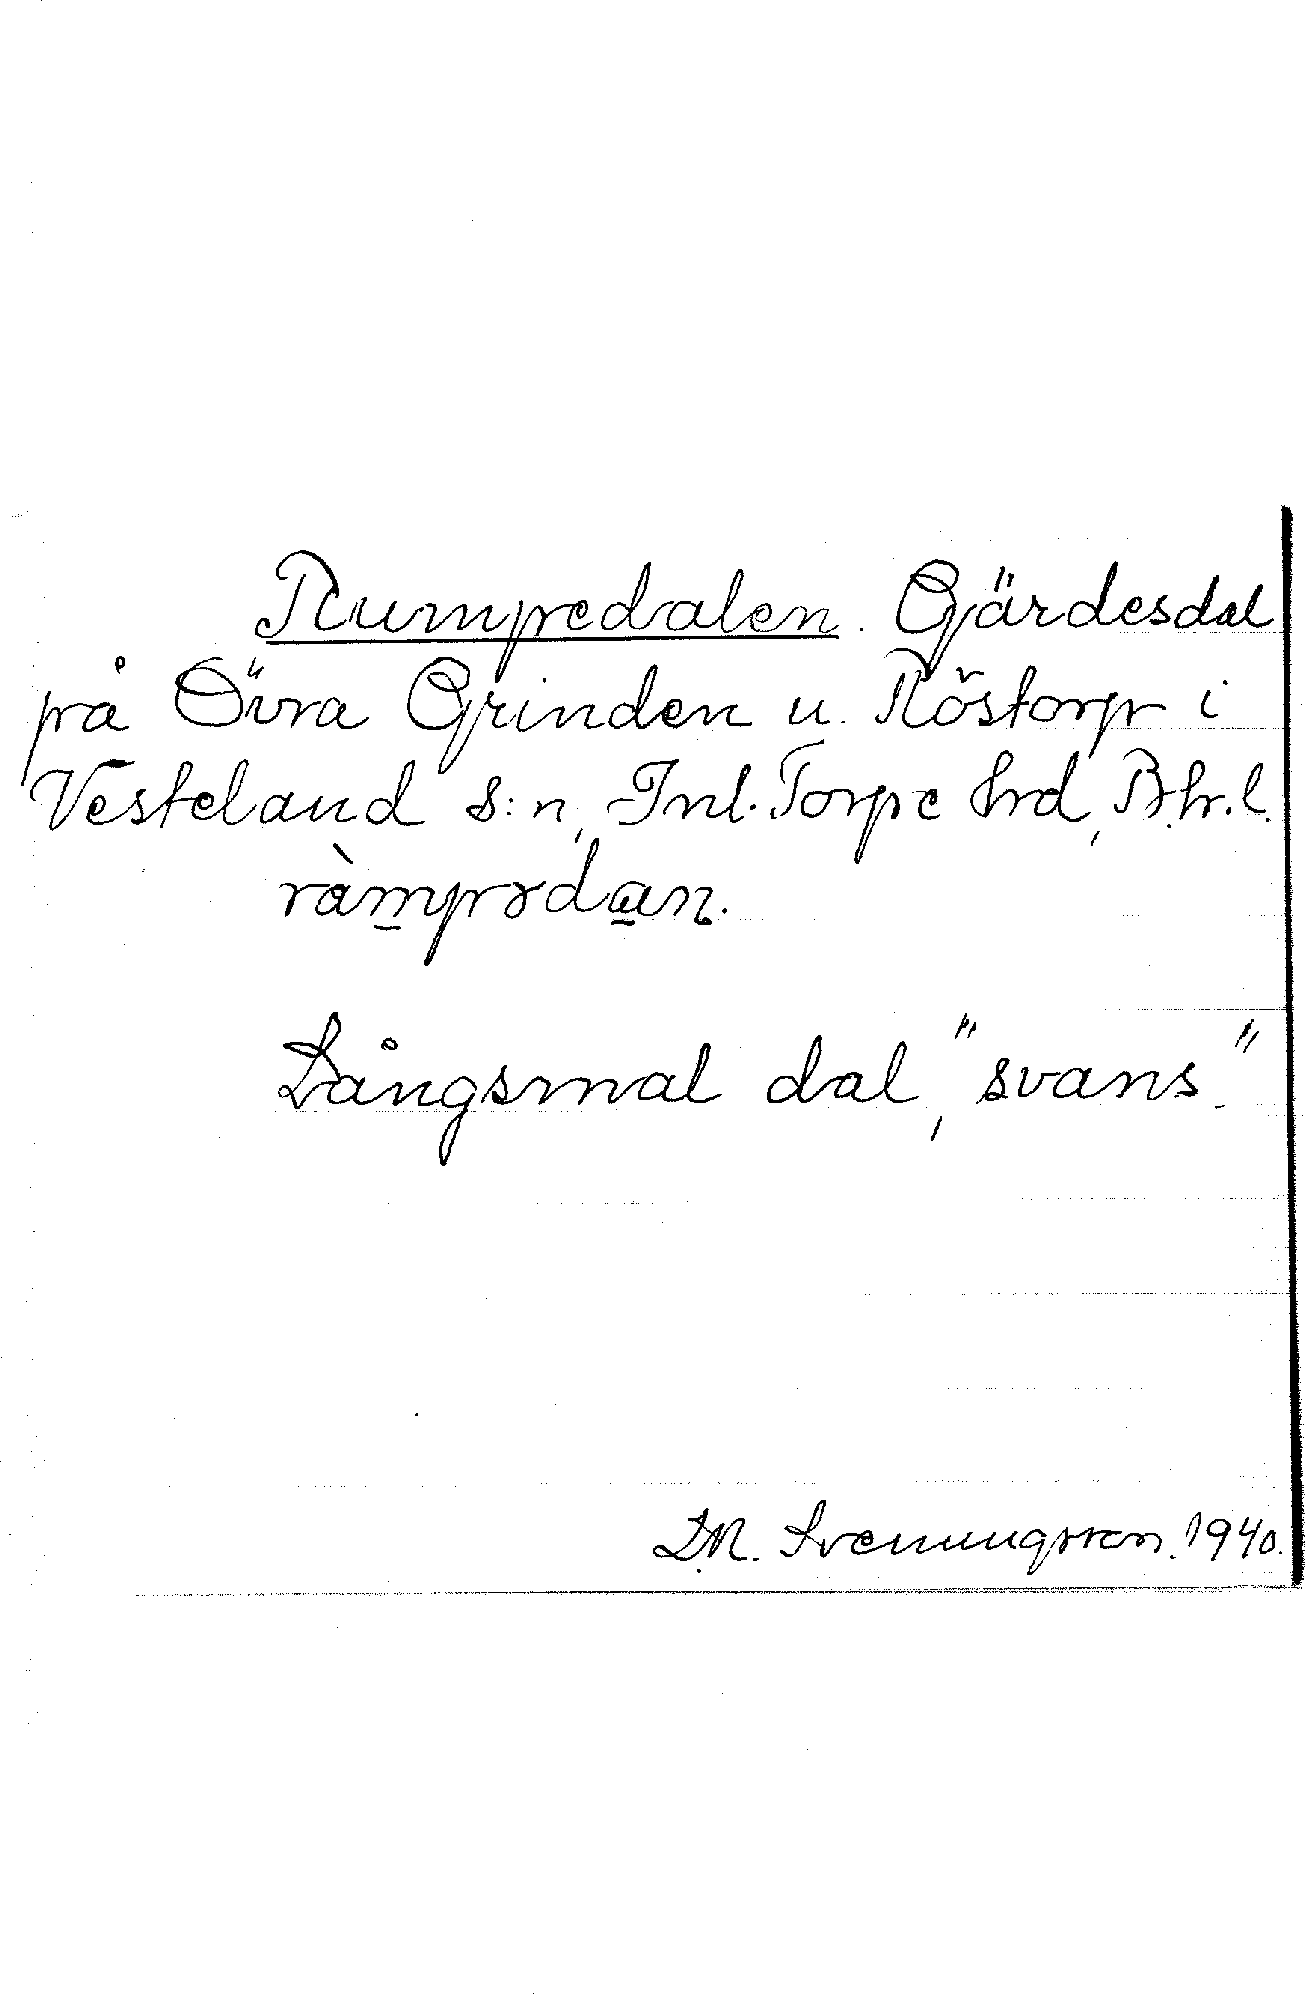 Rumpedalen. Gärdesdal
på Övra Grinden u. Röstorp i
Vesteland s:n, Inl. Torpe hrd, Bh.l.
ràmpɤdan.
Långsmal dal, "svans."
D.N. Svenungsson. 1940.